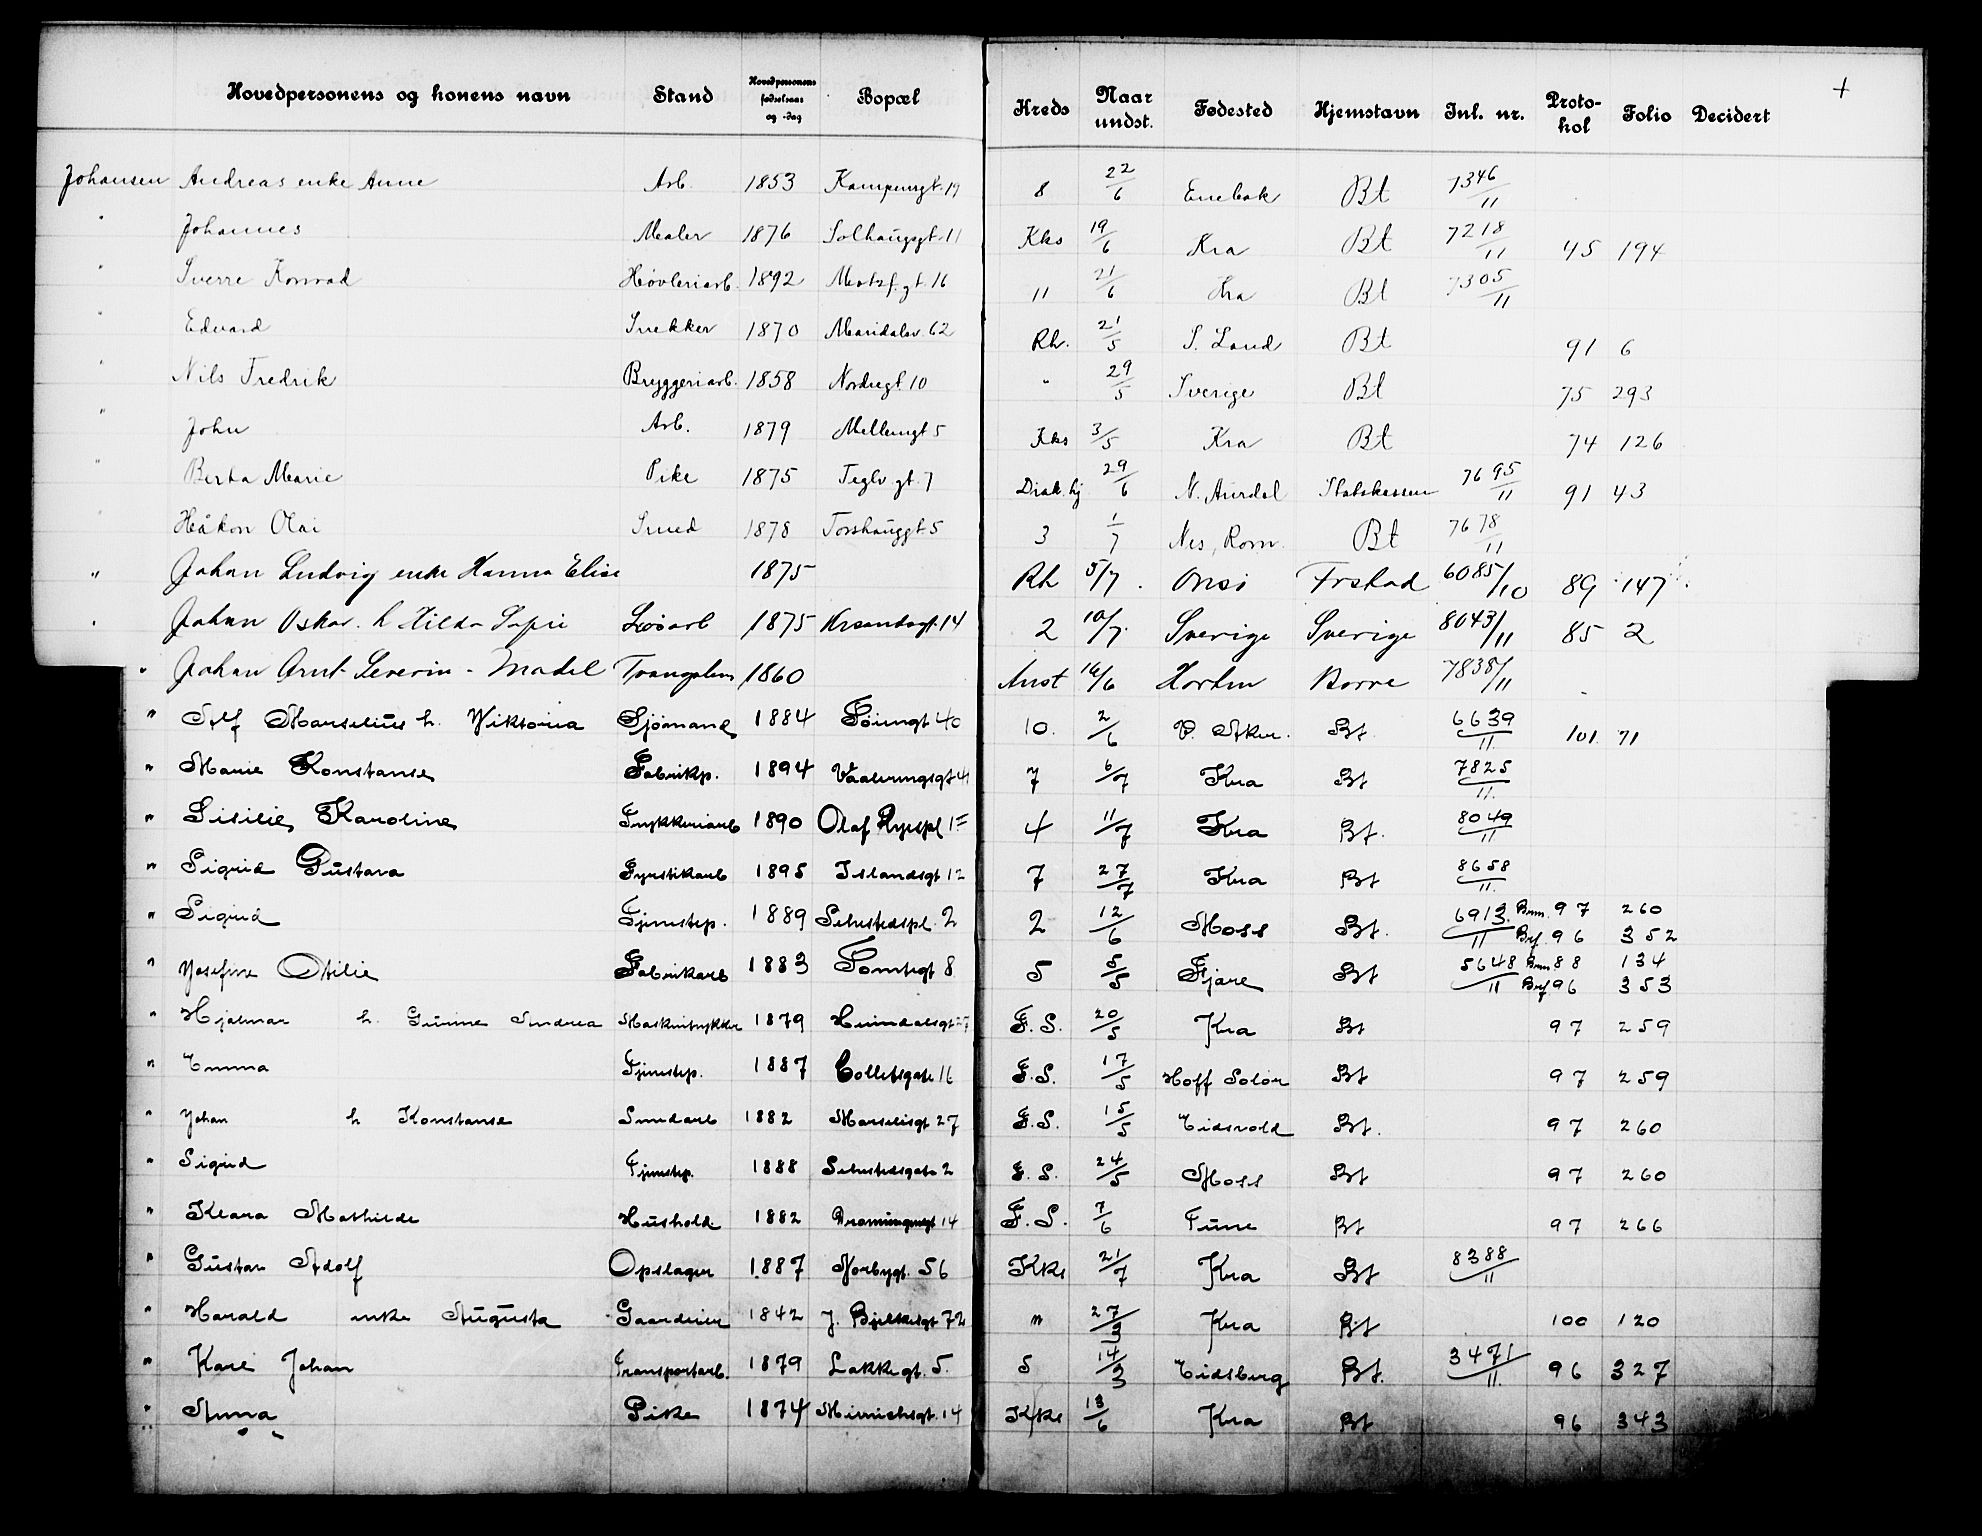 Hovedpersonens og konens navn Stand Hovedpersonens fødselsaar og -dag Bopæl Kreds Naar undst. Fødested Hjemstavn Inl. nr. Protokol Folio Decidert +
Johansen Andreas enke Anne Arb. 1853 Kampengt. 19 8 22/6 Enebak Bt 7346/11
" Johannes Maler 1876 Solhauggt. 11 Kks 19/6 Kra Bt 7218/11 45 194
" Sverre Konrad Høvleriarb. 1892 Motzf. gt. 16 11 21/6 Kra Bt 7305/11
" Edvard Snekker 1870 Maridalsv. 62 Rh. 21/5 S. Land Bt 91 6
" Nils Fredrik Bryggeriarb. 1858 Nordregt. 10 " 29/5 Sverige Bt 75 293
" John Arb. 1879 Mellemgt 5 Kks 3/5 Kra Bt 74 126
" Berta Marie Pike 1875 Teglv. gt. 7 Diak. hj 29/6 N. Aurdal Statskassen 7695/11 91 43
" Håkon Olai Smed 1878 Torshauggt. 5 3 1/7 Nes, Rom. Bt 7678/11
" Johan Ludvig enke Hanna Elise 1875 Rh 5/7 Onsø Frstad 6085/10 89 147
" Johan Oskar h Hilda Sofie Løsarb 1875 Krsandsgt. 14 2 10/7 Sverige Sverige 8043/11 85 2
" Johan Arnt Severin - Madel Tvangslem 1860 Anst 16/6 Horten Borre 7838/11
" Alf Marselius h. Viktoria Sjømand 1884 Tøiengt 40 10. 2/6 V. Aker. Bt. 6639/11 101. 71
" Marie Konstanse Fabrikp. 1894 Vaalerenggt 41 7 6/7 Kra Bt 7825/11.
" Sisilie Karoline Trykkeriarb 1890 Olaf Ryespl 1 4 11/7 Kra Bt. 8049/11
" Sigrid Gustava Fyrstikarb 1895 Islandsgt 12 7 27/7 Kra Bt 8658/11.
" Sigrid Tjenestep. 1889 Sehestedspl. 2 2 12/6 Moss Bt. 6913/11 Bmn. 97 260
Brf. 96 352
" Josefine Otilie Fabrikarb 1883 Tomtegt 8 5 5/5 Fjære Bt 5648/11 Bmn 88 134
Brf. 96 353
" Hjalmar h. Gunine Andrea Maskintrykker 1879 Heimdalsgt 27 F. S. 20/5 Kra Bt 97 259
" Emma Tjenestep. 1887 Colletsgate 16 F. S. 17/5 Hoff Solør Bt 97 259
" Johan h Konstanse Smedarb 1882 Marselisgt 27 F. S. 15/5 Eidsvold Bt. 97 260
" Sigrid Tjenestep. 1888 Sehestedsgate 2 F. S. 24/5 Moss Bt 97 260
" Klara Mathilde Hushold. 1882 Dronningensgt 14 F. S. 7/6 Tune Bt 97 266
" Gustav Adolf Opslager 1887 Norbygt. 56 Kks 21/7 Kra Bt 8388/11
" Harald enke Augusta Gaardeier 1842 J. Bjelkesgt 72 " 27/3 Kra Bt 100 120
" Karl Johan Transportarb. 1879 Lakkegt. 5. 5 14/3 Eidsberg Bt. 3471/11. 96 327
" Anna Pike 1874 Minnichsgt. 14 Kks 13/6 Kra Bt 96 343